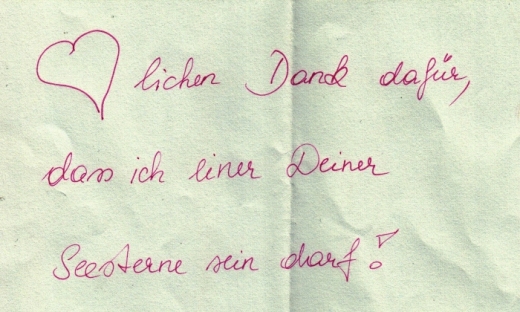 lichen Dank dafür,
dass ich einer Deiner
Seesterne sein darf!